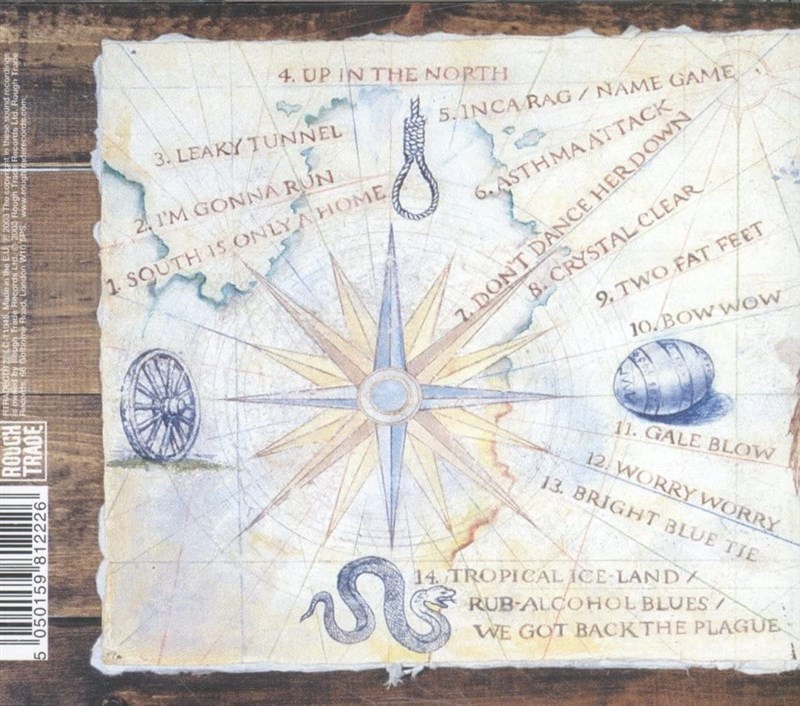 4. UP IN THE NORTH
5. INCA RAG / NAME GAME
3. LEAKY TUNNEL
6. ASTHMA ATTACK
2. I'M GONNA RUN
7. DON'T DANCE HER DOWN
1. SOUTH IS ONLY A HOME
8. CRYSTAL CLEAR
9. TWO FAT FEET
10. BOW WOW
11. GALE BLOW
12. WORRY WORRY
13. BRIGHT BLUE TIE
14. TROPICAL ICE-LAND /
RUB-ALCOHOL BLUES /
WE GOT BACK THE PLAGUE
2003 The copyright in these sound recordings
Rough Trade Records Ltd. 2003 Rough Trade Records Ltd. Rough Trade
Records, 66 Golborne Road, London W10 5PS. www.roughtraderecords.com
ROUGH
TRADE
5 050159 812226